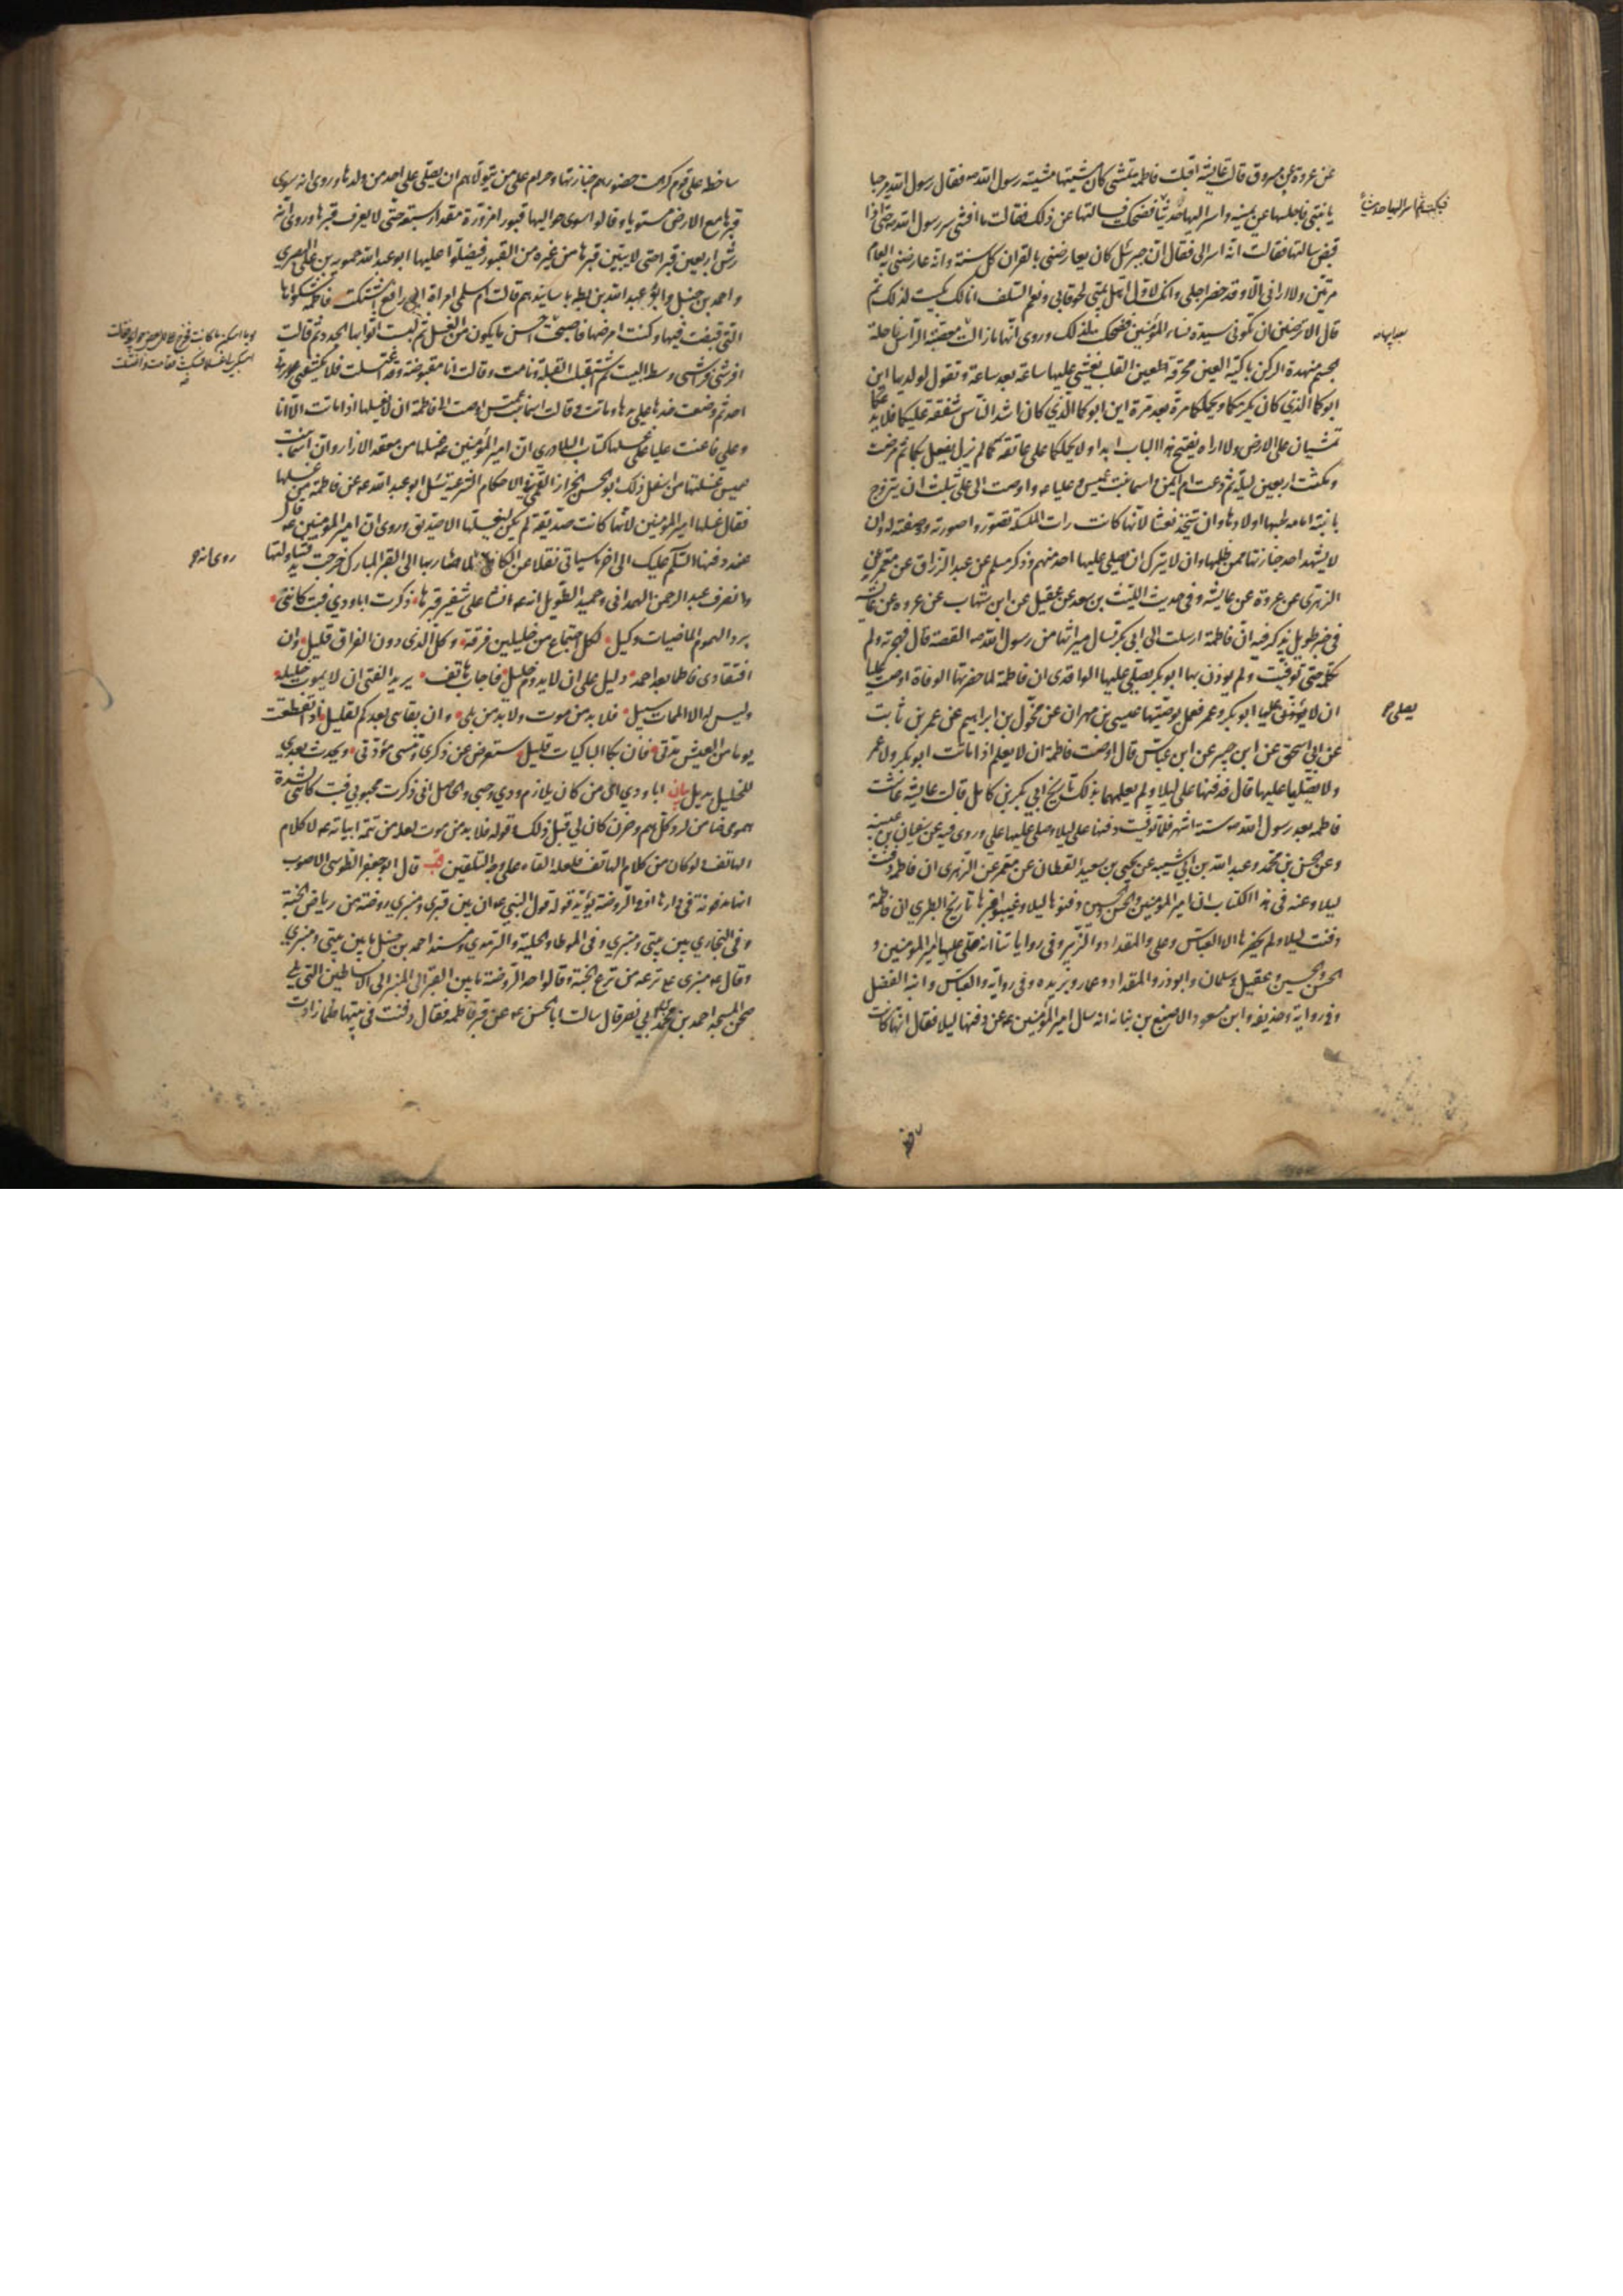 عن عروة عن مسروق قالت عايشة اقبلت فاطمة تمشي كان مشيتها مشية رسول الله ص فقال رسول الله مرحبا
يا بنتي فاجلسها عن يمينه واسر اليها حديثا فضحكت فسالتها عن ذلك فقالت ما افشي سر رسول الله حتى اذا
فبكت ثم اسر اليها حديثا
قبض سالتها فقالت انه اسر الي فقال ان جبرئيل كان يعارضني بالقران كل سنة وانه عارضني العام
مرتين ولا اراني الا وقد حضر اجلي وانك لاول اهل بيتي لحوقا بي ونعم السلف انا لك بكيت لذلك ثم
قال الا ترضين ان تكوني سيدة نساء المؤمنين فضحكت لذلك وروي انها ما زالت معصبة الراس ناحلة
بعد ابيها
الجسم منهدة الركن باكية العين محترقة القلب يغشي عليها ساعة بعد ساعة وتقول لولديها اين
ابوكما الذي كان يكرمكما ويحملكما مرة بعد مرة اين ابوكما الذي كان اشد الناس شفقة عليكما فلا يدعكما
تمشيان على الارض ولا اراه يفتح هذا الباب ابدا ولا يحملكما على عاتقه كما لم يزل يفعل بكما ثم مرضت
ومكثت اربعين ليلة ثم دعت ام ايمن واسما بنت عميس وعليا ع واوصت الى علي بثلث ان يتزوج
بابنة امامة لحبها اولادها وان يتخذ نعشا لانها كانت رات الملئكة تصوروا صورته ووصفته له وان
لا يشهد احد جنازتها ممن ظلمها وان لا يترك ان يصلي عليها احد منهم وذكر مسلم عن عبد الرزاق عن معمر عن
الزهري عن عروة عن عايشة وفي حديث الليث بن سعد عن عقيل عن ابن شهاب عن عروة عن عايشة
في خبر طويل يذكر فيه ان فاطمة ارسلت الى ابي بكر تسال ميراثها من رسول الله ص القصة قال فهجرته ولم
تكلمه حتى توفيت ولم يوذن بها ابو بكر يصلي عليها الواقدي ان فاطمة لما حضرتها الوفاة اوصت عليا
ان لا يصلي عليها ابو بكر وعمر فعمل بوصيتها عيسى بن مهران عن مخول بن ابراهيم عن عمر بن ثابت
يصلي
عن ابي اسحق عن ابن جبير عن ابن عباس قال اوصت فاطمة ان لا يعلم اذا ماتت ابو بكر ولا عمر
ولا يصليا عليها قال فدفنها علي ليلا ولم يعلمهما بذلك تاريخ ابي بكر بن كامل قالت عايشة عاشت
فاطمة بعد رسول الله ص ستة اشهر فلما توفيت دفنها علي ليلا وصلى عليها علي وروى فيه عن سفيان بن عيينة
وعن الحسن بن محمد وعبد الله بن ابي شيبة عن يحيى بن سعيد القطان عن معمر عن الزهري ان فاطمة دفنت
ليلا وعنه في هذا الكتاب ان امير المؤمنين والحسن والحسين دفنوها ليلا وغيبوا قبرها تاريخ الطبري ان فاطمة
دفنت ليلا ولم يحضرها الا العباس وعلي والمقداد والزبير وفي رواياتنا انه صلى عليها امير المؤمنين و
الحسن والحسين وعقيل وسلمان وابو ذر والمقداد وعمار وبريدة وفي رواية والعباس وابنه الفضل
وفي رواية وحذيفة وابن مسعود الاصبغ بن نباتة انه سال امير المؤمنين ع عن دفنها ليلا فقال انها كانت
ساخطة على قوم كرهت حضورهم جنازتها وحرام على من يتولاهم ان يصلي على احد من ولدها وروي انه سوى
قبرها مع الارض مستويا وقالوا سوى حواليها قبورا مزورة مقدار سبعة حتى لا يعرف قبرها وروي انه
رش اربعين قبرا حتى لا يتبين قبرها من غيره من القبور فيصلوا عليها ابو عبد الله حمويه بن علي البصري
واحمد بن حنبل وابو عبد الله بن بطة باسانيدهم قالت ام سلمى امراة ابي رافع اشتكت فاطمة شكواها
التي قبضت فيها وكنت امرضها فاصبحت احسن ما يكون من الغسل ثم لبست اثوابها الجدد ثم قالت
اسكبي لي غسلا فسكبت فقامت واغتسلت
افرشي فراشي وسط البيت ثم استقبلت القبلة ونامت وقالت انا مقبوضة وقد اغتسلت فلا يكشفني
احد ثم وضعت خدها على يدها وماتت وقالت اسما بنت عميس اوصت الي فاطمة ان لا يغسلها اذا ماتت الا انا
وعلي فاعنت عليا على غسلها كتاب البلاذري ان امير المؤمنين ع غسلها من معقد الازار وان اسما بنت
عميس غسلتها من اسفل ذلك ابو الحسن الخزاز القمي في الاحكام الشرعية سئل ابو عبد الله ع عن فاطمة من غسلها
فقال غسلها امير المؤمنين لانها كانت صديقة لم يكن ليغسلها الا صديق وروي ان امير المؤمنين ع قال
عند دفنها السلام عليك الى اخر ما سياتي نقلا عن الكافي لما صار بها الى القبر المبارك خرجت يد فتناولتها
روي انه
وانصرف عبد الرحمن الهمداني وحميد الطويل انه ع انشا على شفير قبرها ذكرت ابا ودي فبت كانني
برد الهموم الماضيات وكيل لكل اجتماع من خليلين فرقة وكل الذي دون الفراق قليل وان
افتقادي فاطما بعد احمد دليل على ان لا يدوم خليل فاجاب هاتف يريد الفتى ان لا يموت خليله
وليس له الا الممات سبيل فلا بد من موت ولا بد من بلى وان بقائي بعدكم لقليل اذا انقطعت
يوما من العيش مدتي فان بكا الباكيات قليل ستعرض عن ذكري وتنسى مودتي ويحدث بعدي
للخليل بديل بيان ابا ودي اي من كان يلازم ودي وحبي والحاصل اني ذكرت محبوبي فبت كاني لشدة
همومي ضامن لرد كل هم وحزن كان لي قبل ذلك وقوله فلا بد من موت لعله من تتمة ابياته ع لا كلام
الهاتف ولو كان من كلام الهاتف فلعله القاه على وجه التلقين قب قال ابو جعفر الطوسي الاصوب
انها مدفونة في دارها او في الروضة يؤيد قوله قول النبي ص ان بين قبري ومنبري روضة من رياض الجنة
وفي البخاري بين بيتي ومنبري وفي الموطا والحلية والترمذي ومسند احمد بن حنبل ما بين بيتي ومنبري
وقال ص منبري على ترعة من ترع الجنة وقالوا حد الروضة ما بين القبر الى المنبر الى الاساطين التي تلي
صحن المسجد احمد بن محمد بن ابي نصر قال سالت ابا الحسن ع عن قبر فاطمة فقال دفنت في بيتها فلما زادت